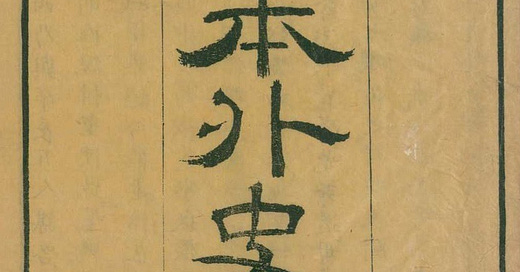 本外史